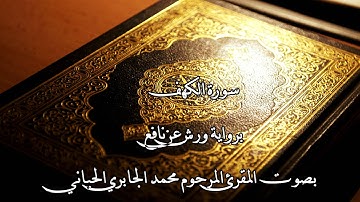 سورة الكهف
برواية ورش عن نافع
بصوت المقرئ المرحوم محمد الجابري الحياني